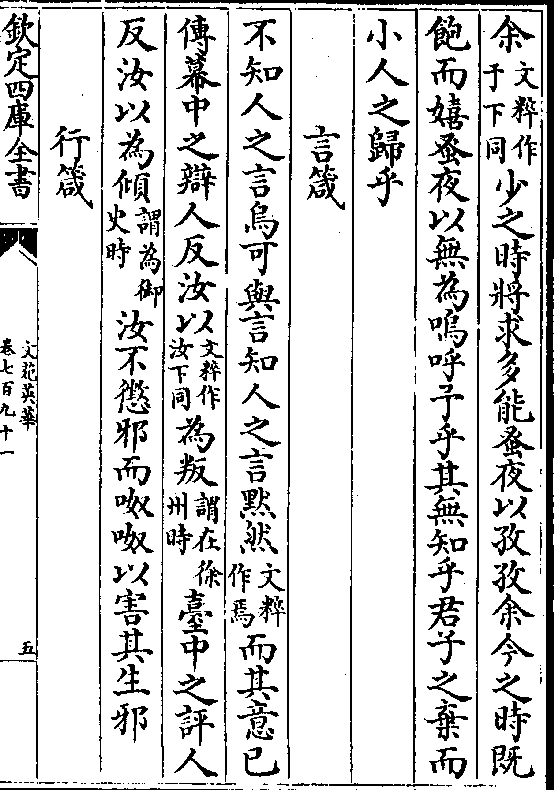 余文粹作于下同少之時將求多能蚤夜以孜孜余今之時既
飽而嬉蚤夜以無為嗚呼予乎其無知乎君子之棄而
小人之歸乎
言箴
不知人之言烏可與言知人之言黙然文粹作焉而其意已
傳幕中之辯人反汝以文粹作汝下同為叛謂在徐州時臺中之評人
反汝以為傾謂為御史時汝不懲邪而呶呶以害其生邪
行箴
欽定四庫全書
文苑英華
卷七百九十一
五